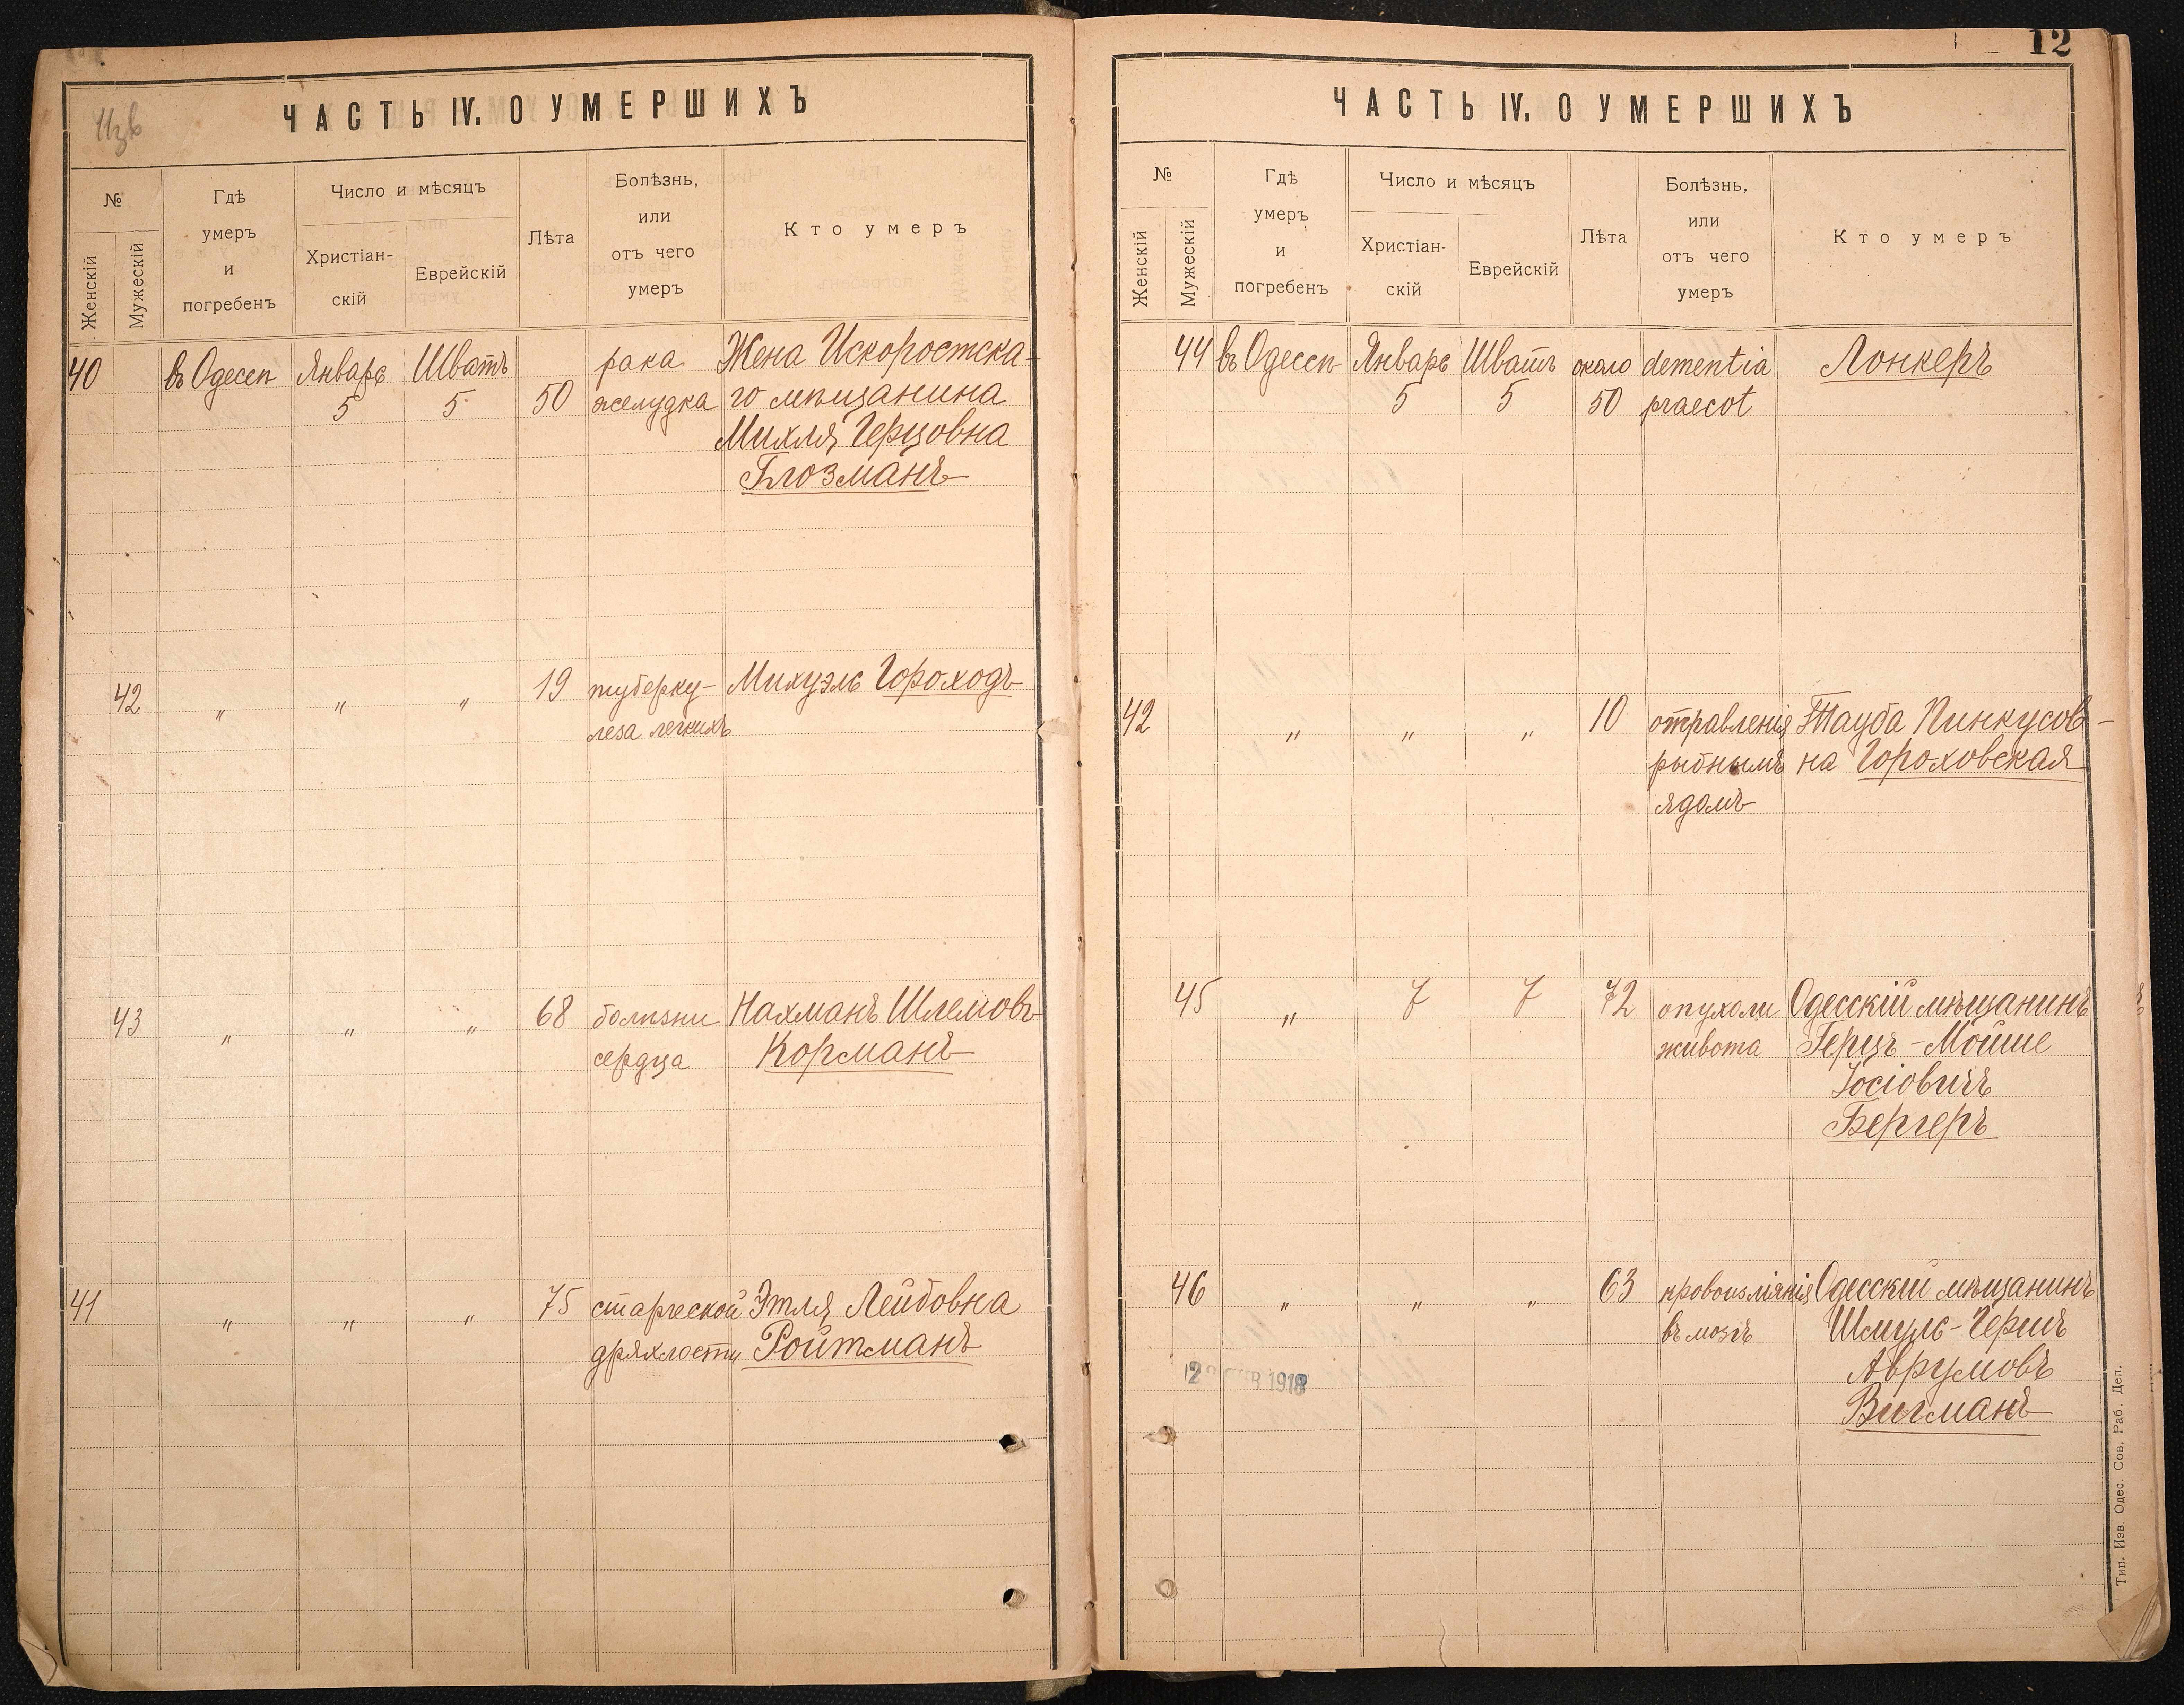 12
ЧАСТЬ IV. О УМЕРШИХЪ
№
Женскій
Мужескій
Гдѣ
умеръ
и
погребенъ
Число и мѣсяцъ
Христіан-
скій
Еврейскій
Лѣта
Болѣзнь,
или
отъ чего
умеръ
Кто умеръ
40 въ Одессѣ Январь Шватъ рака Жена Искоростска-
5 5 50 желудка го мѣщанина
Михля Герцовна
Глозманъ
42 „ „ „ 19 туберку- Михуэль Гороходъ
леза легкихъ
43 „ „ „ 68 болѣзни Нахманъ Шлемовъ
сердца Корманъ
41 „ „ „ 75 старческой Этля Лейбовна
дряхлости Ройтманъ
ЧАСТЬ IV. О УМЕРШИХЪ
№
Женскій
Мужескій
Гдѣ
умеръ
и
погребенъ
Число и мѣсяцъ
Христіан-
скій
Еврейскій
Лѣта
Болѣзнь,
или
отъ чего
умеръ
Кто умеръ
44 въ Одессѣ Январь Шватъ около dementia Лонкеръ
5 5 50 praecot
42 „ „ „ 10 отравленія Тауба Пинкусов-
рыбнымъ на Гороховская
ядомъ
45 „ 7 7 72 опухоли Одесскій мѣщанинъ
живота Герцъ-Мойше
Іосіовичъ
Бергеръ
46 „ „ „ 63 кровоизліянія Одесскій мѣщанинъ
въ мозгъ Шмуль-Гершъ
Аврумовъ
Вигманъ
1918
Тип. Изв. Одес. Сов. Раб. Деп.